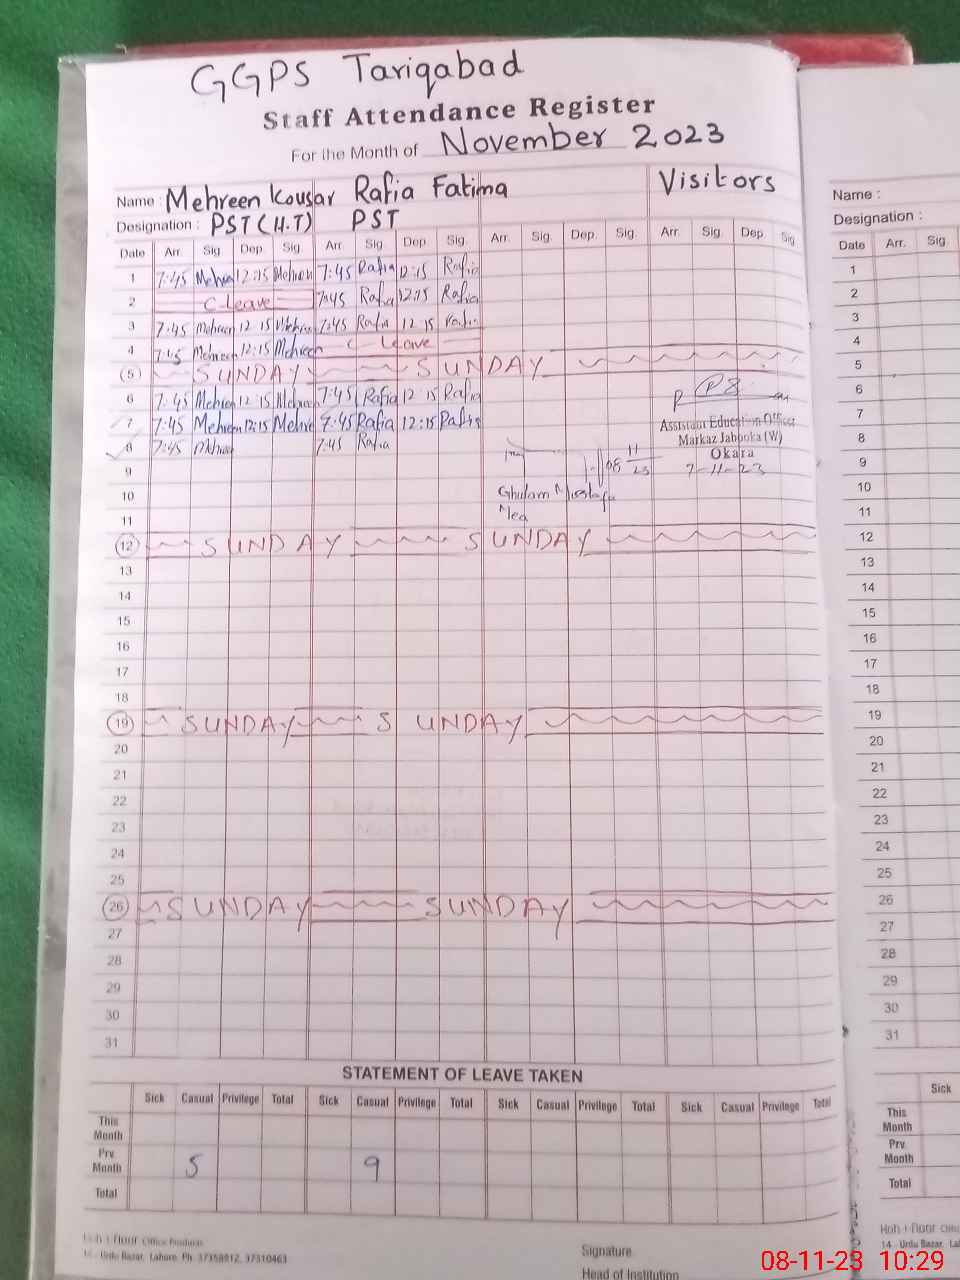 GGPS Tariqabad
Staff Attendance Register
For the Month of November 2023
Name : Mehreen Kousar Rafia Fatima Visitors
Designation : PST (H.T) PST
Date Arr. Sig. Dep. Sig. Arr. Sig. Dep. Sig. Arr. Sig. Dep. Sig. Arr. Sig. Dep. Sig.
1 7:45 Mehreen 12:15 Mehreen 7:45 Rafia 12:15 Rafia
2 C-Leave 7:45 Rafia 12:15 Rafia
3 7:45 Mehreen 12 15 Mehreen 7:45 Rafia 12 15 Rafia
4 7:45 Mehreen 12:15 Mehreen C-Leave
5 SUNDAY SUNDAY
6 7:45 Mehreen 12 15 Mehreen 7:45 Rafia 12 15 Rafia
7 7:45 Mehreen 12:15 Mehreen 7:45 Rafia 12:15 Rafia
Assistant Education Officer
Markaz Jabboka (W)
Okara
7-11-23
8 7:45 Mehreen 7:45 Rafia
08 11 23
9
10 Ghulam Mustafa
11 Mea
12 SUNDAY SUNDAY
13
14
15
16
17
18
19 SUNDAY SUNDAY
20
21
22
23
24
25
26 SUNDAY SUNDAY
27
28
29
30
31
STATEMENT OF LEAVE TAKEN
Sick Casual Privilege Total Sick Casual Privilege Total Sick Casual Privilege Total Sick Casual Privilege Total
This Month
Prv. Month 5 9
Total
Roh-i-Noor Office Products
14 - Urdu Bazar, Lahore. Ph: 37358912, 37310463
Signature
Head of Institution
Name :
Designation :
Date Arr. Sig.
1
2
3
4
5
6
7
8
9
10
11
12
13
14
15
16
17
18
19
20
21
22
23
24
25
26
27
28
29
30
31
Sick
This Month
Prv. Month
Total
Roh-i-Noor
14 - Urdu Bazar,
08-11-23 10:29